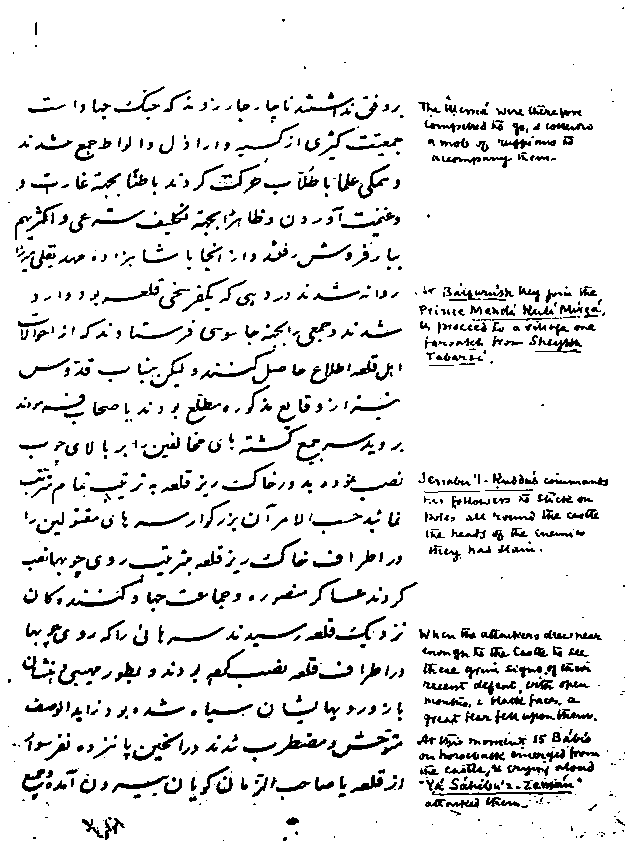 بروفق نداشتند ناچار جار زدند که جنک جهاد است
جمعیت کثیری از کسبه و اراذل و الواط جمع شدند
و تمامی علما با طلاب حرکت کردند باطنا بجهة غارت و
و غنیمت آوردن و ظاهرا بجهة تکلیف شرعی و اکثریهم
ببارفروش رفتند و از آنجا با شاهزاده مهدیقلی میرزا
روانه شدند در دهی که یکفرسخی قلعه بود وارد
شدند و جمعی را بجهة جاسوسی فرستادند که از احوالات
اهل قلعه اطلاع حاصل کنند و لیکن جناب قدّوس
از وقایع مذکوره مطلع بودند باصحاب فرمودند
بروید سر جمیع کشته های مخالفین را بر بالای چوب
نصب نموده بدور خاک ریز قلعه به ترتیب تمام
نمائید حسب الامر آن بزرکوار سرهای مقتولین را
در اطراف خاک ریز قلعه بترتیب روی چوبها نصب
کردند عساکر منصوره و جماعت جهاد کننده کان
نزدیک قلعه رسیدند سرهائی را که روی چوبها
در اطراف قلعه نصب کرده بودند و بطور مهیبی
باز و روهایشان سیاه شده بود زاید الوصف
متوحش و مضطرب شدند در انحین پانزده نفر سواره
از قلعه یا صاحب الزمان کویان بیرون آمده و بجمع
The 'Ulemá were therefore
compelled to go, & collected
a mob of ruffians to
accompany them.
At Bárfurúsh they join the
Prince Mahdí Kulí Mírzá,
& proceed to a village one
farsakh from Sheykh
Tabarsí.
Jenábu'l-Kuddús commands
his followers to stick on
poles all round the castle
the heads of the enemies
they had slain.
When the attackers drew near
enough to the Castle to see
these grim signs of their
recent defeat, with open
mouths, & black faces, a
great fear fell upon them.
At this moment 15 Bábís
on horseback emerged from
the castle, & crying aloud
"Yá Sáhibu'z-Zemán"
attacked them.